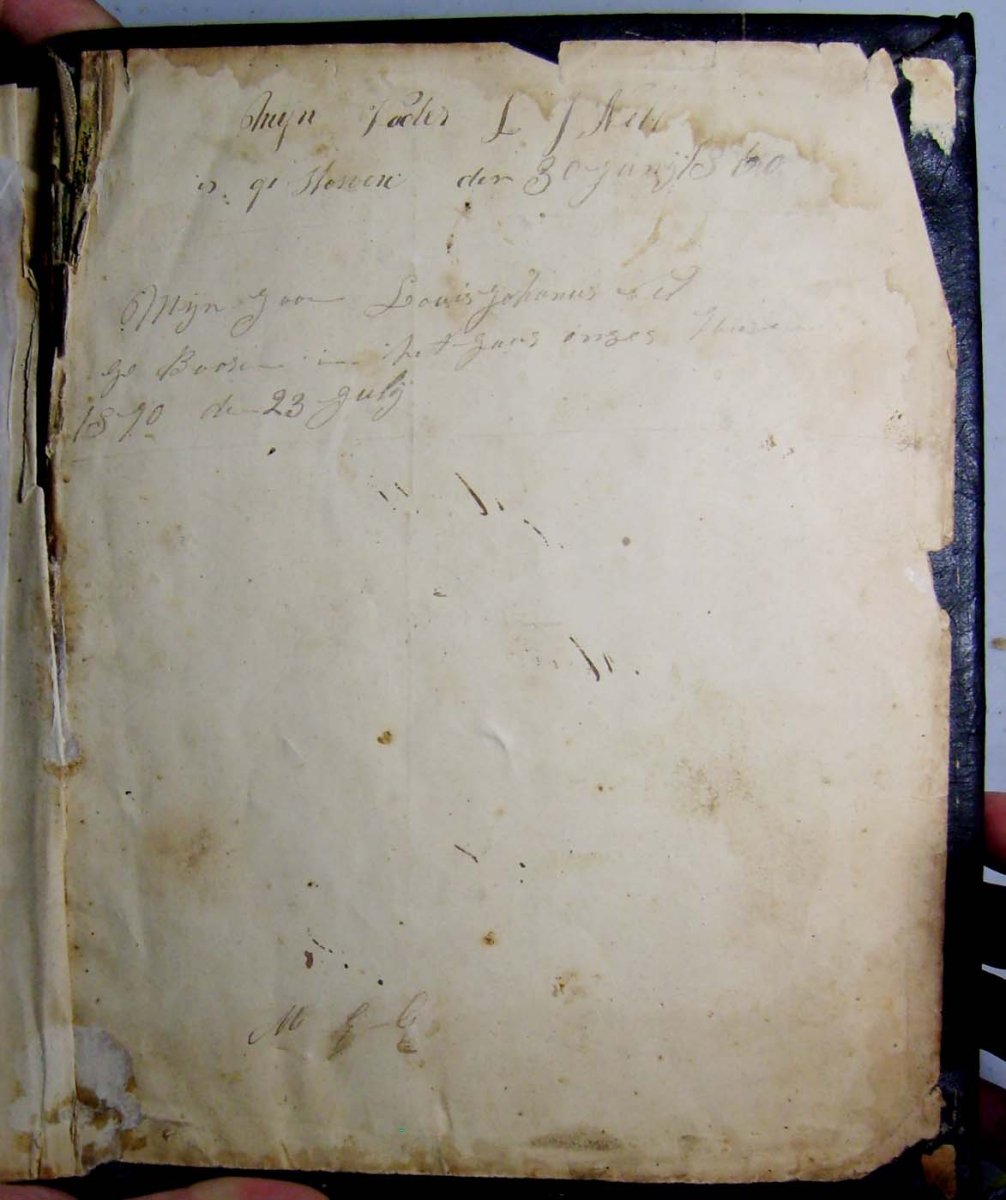 Mijn Vader L J Nel
is ge storven den 30 Junij 1860
Mijn Zoon Louis Johannus Nel
ge Booren in het Jaar onzes Heere
1870 den 23 Julij
M G